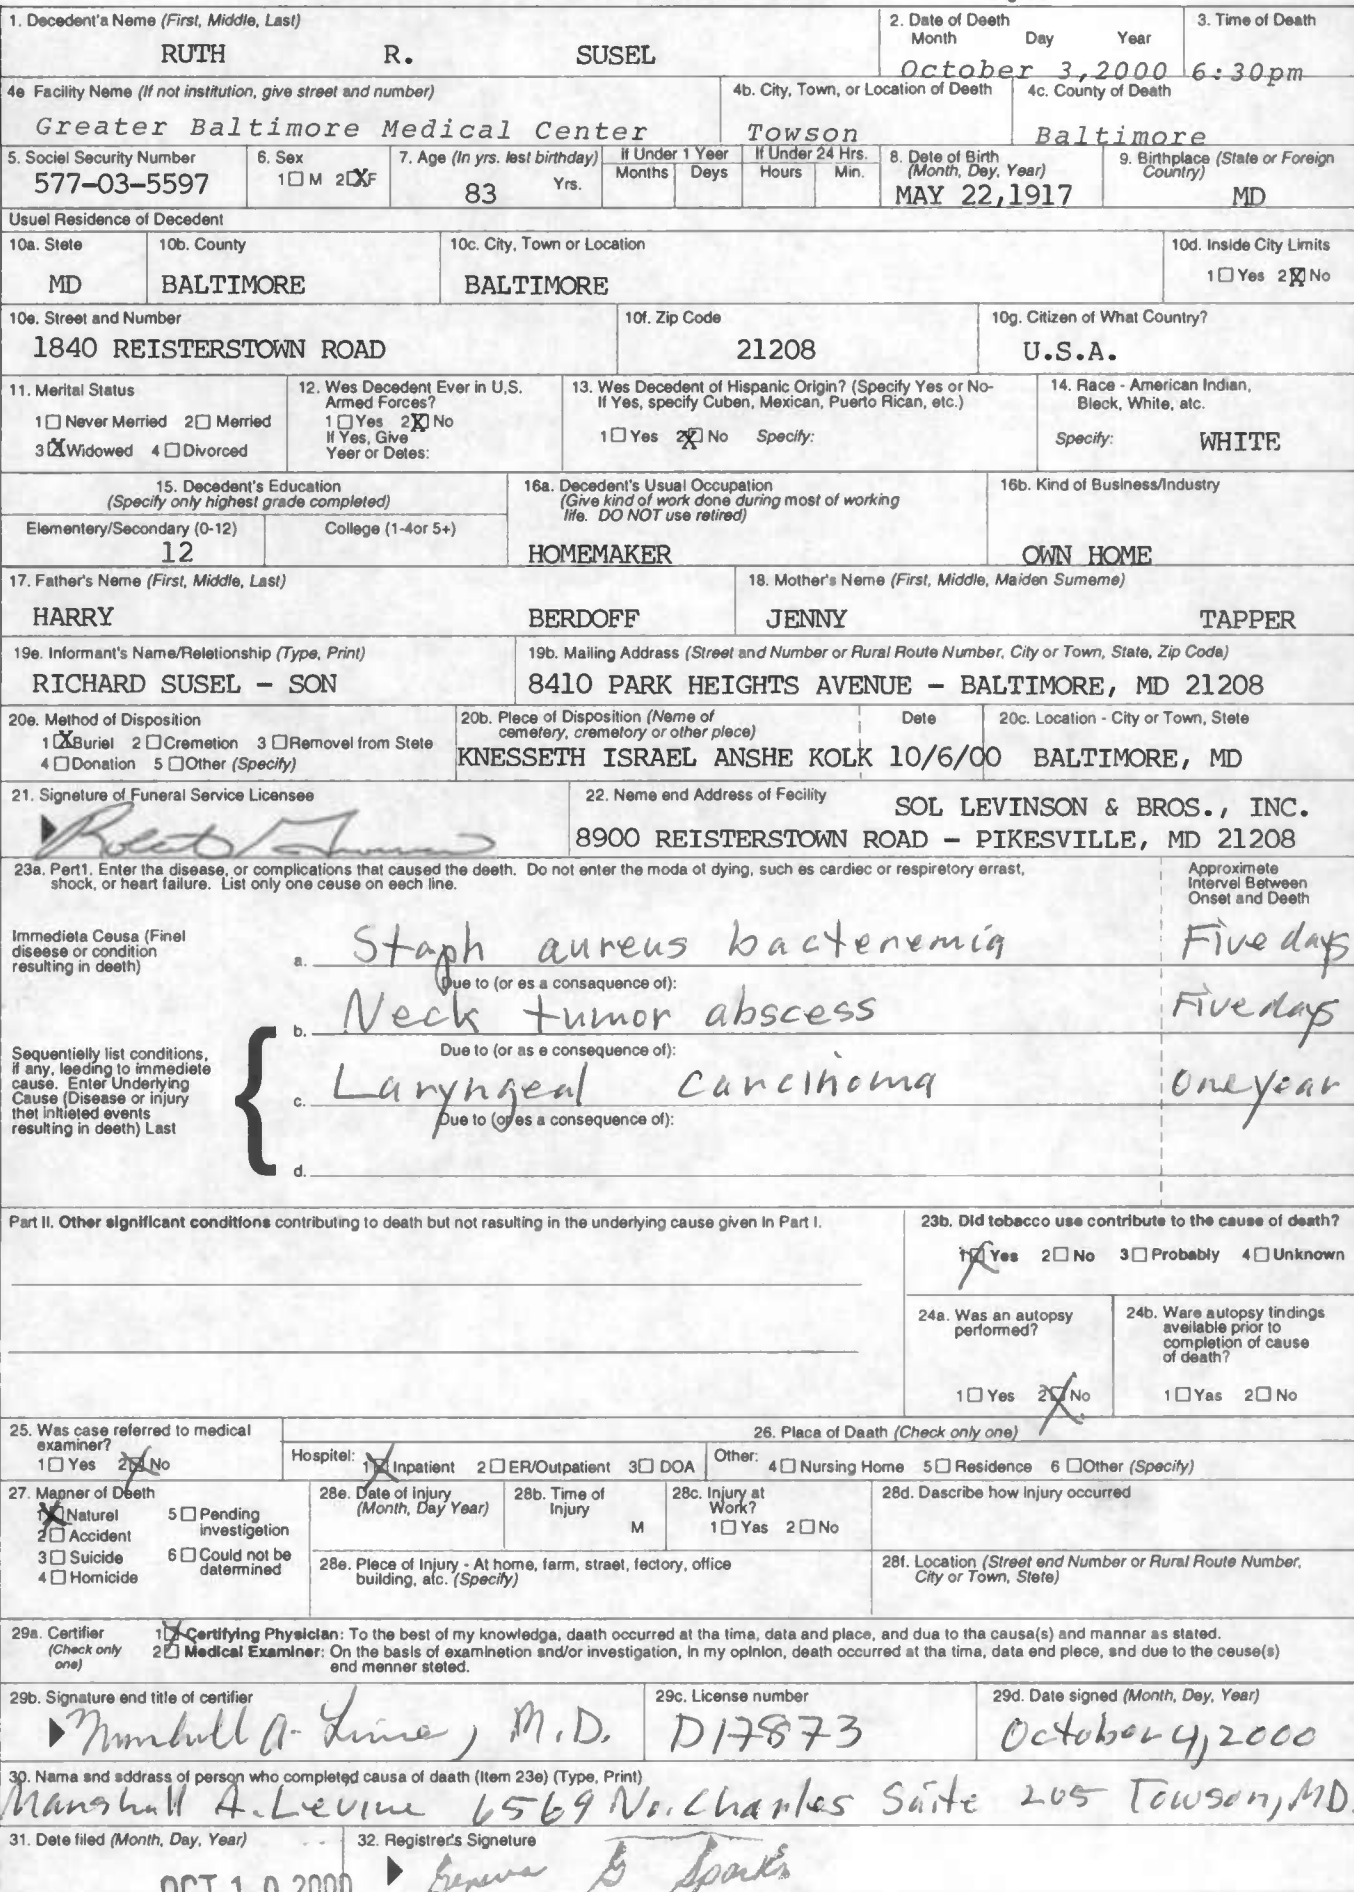 1. Decedent's Name (First, Middle, Last)
RUTH R. SUSEL
2. Date of Death
Month Day Year
October 3,2000
3. Time of Death
6:30pm
4e Facility Name (If not institution, give street and number)
Greater Baltimore Medical Center
4b. City, Town, or Location of Death
Towson
4c. County of Death
Baltimore
5. Social Security Number
577-03-5597
6. Sex
1☐ M 2☒F
7. Age (In yrs. last birthday)
83 Yrs.
If Under 1 Year
Months Days
If Under 24 Hrs.
Hours Min.
8. Date of Birth
(Month, Day, Year)
MAY 22,1917
9. Birthplace (State or Foreign
Country)
MD
Usual Residence of Decedent
10a. State
MD
10b. County
BALTIMORE
10c. City, Town or Location
BALTIMORE
10d. Inside City Limits
1☐ Yes 2☒ No
10e. Street and Number
1840 REISTERSTOWN ROAD
10f. Zip Code
21208
10g. Citizen of What Country?
U.S.A.
11. Marital Status
1☐ Never Married 2☐ Married
3☒ Widowed 4☐ Divorced
12. Was Decedent Ever in U.S.
Armed Forces?
1☐ Yes 2☒ No
If Yes, Give
Year or Dates:
13. Was Decedent of Hispanic Origin? (Specify Yes or No-
If Yes, specify Cuban, Mexican, Puerto Rican, etc.)
1☐ Yes 2☒ No Specify:
14. Race - American Indian,
Black, White, etc.
Specify: WHITE
15. Decedent's Education
(Specify only highest grade completed)
Elementary/Secondary (0-12)
12
College (1-4or 5+)
16a. Decedent's Usual Occupation
(Give kind of work done during most of working
life. DO NOT use retired)
HOMEMAKER
16b. Kind of Business/Industry
OWN HOME
17. Father's Name (First, Middle, Last)
HARRY BERDOFF
18. Mother's Name (First, Middle, Maiden Surname)
JENNY TAPPER
19a. Informant's Name/Relationship (Type, Print)
RICHARD SUSEL - SON
19b. Mailing Address (Street and Number or Rural Route Number, City or Town, State, Zip Code)
8410 PARK HEIGHTS AVENUE - BALTIMORE, MD 21208
20a. Method of Disposition
1☒Burial 2☐Cremation 3☐Removal from State
4☐Donation 5☐Other (Specify)
20b. Place of Disposition (Name of
cemetery, crematory or other place)
KNESSETH ISRAEL ANSHE KOLK
Date
10/6/00
20c. Location - City or Town, State
BALTIMORE, MD
21. Signature of Funeral Service Licensee
22. Name and Address of Facility
SOL LEVINSON & BROS., INC.
8900 REISTERSTOWN ROAD - PIKESVILLE, MD 21208
23a. Part1. Enter the disease, or complications that caused the death. Do not enter the mode of dying, such as cardiac or respiratory arrest,
shock, or heart failure. List only one cause on each line.
Approximate
Interval Between
Onset and Death
Immediate Cause (Final
disease or condition
resulting in death)
a. Staph aureus bacteremia Five days
Due to (or as a consequence of):
b. Neck tumor abscess Five days
Due to (or as a consequence of):
Sequentially list conditions,
if any, leading to immediate
cause. Enter Underlying
Cause (Disease or injury
that initiated events
resulting in death) Last
c. Laryngeal carcinoma One year
Due to (or as a consequence of):
d.
Part II. Other significant conditions contributing to death but not resulting in the underlying cause given in Part I.
23b. Did tobacco use contribute to the cause of death?
1☒ Yes 2☐ No 3☐ Probably 4☐ Unknown
24a. Was an autopsy
performed?
1☐ Yes 2☒ No
24b. Were autopsy findings
available prior to
completion of cause
of death?
1☐ Yes 2☐ No
25. Was case referred to medical
examiner?
1☐ Yes 2☒ No
26. Place of Death (Check only one)
Hospital: 1☒ Inpatient 2☐ ER/Outpatient 3☐ DOA
Other: 4☐ Nursing Home 5☐ Residence 6 ☐Other (Specify)
27. Manner of Death
1☒Natural
2☐ Accident
3☐ Suicide
4☐ Homicide
5☐ Pending
investigation
6☐ Could not be
determined
28a. Date of injury
(Month, Day Year)
28b. Time of
Injury
M
28c. Injury at
Work?
1☐ Yes 2☐ No
28d. Describe how Injury occurred
28e. Place of Injury - At home, farm, street, factory, office
building, etc. (Specify)
28f. Location (Street and Number or Rural Route Number,
City or Town, State)
29a. Certifier
(Check only
one)
1☒ Certifying Physician: To the best of my knowledge, death occurred at the time, date and place, and due to the cause(s) and manner as stated.
2☐ Medical Examiner: On the basis of examination and/or investigation, in my opinion, death occurred at the time, date and place, and due to the cause(s)
and manner stated.
29b. Signature and title of certifier
Marshall A. Levine, M.D.
29c. License number
D17873
29d. Date signed (Month, Day, Year)
October 4, 2000
30. Name and address of person who completed cause of death (Item 23a) (Type, Print)
Marshall A. Levine 6569 No. Charles Suite 205 Towson, MD.
31. Date filed (Month, Day, Year)
OCT 10 2000
32. Registrar's Signature
Geneva G Sparks